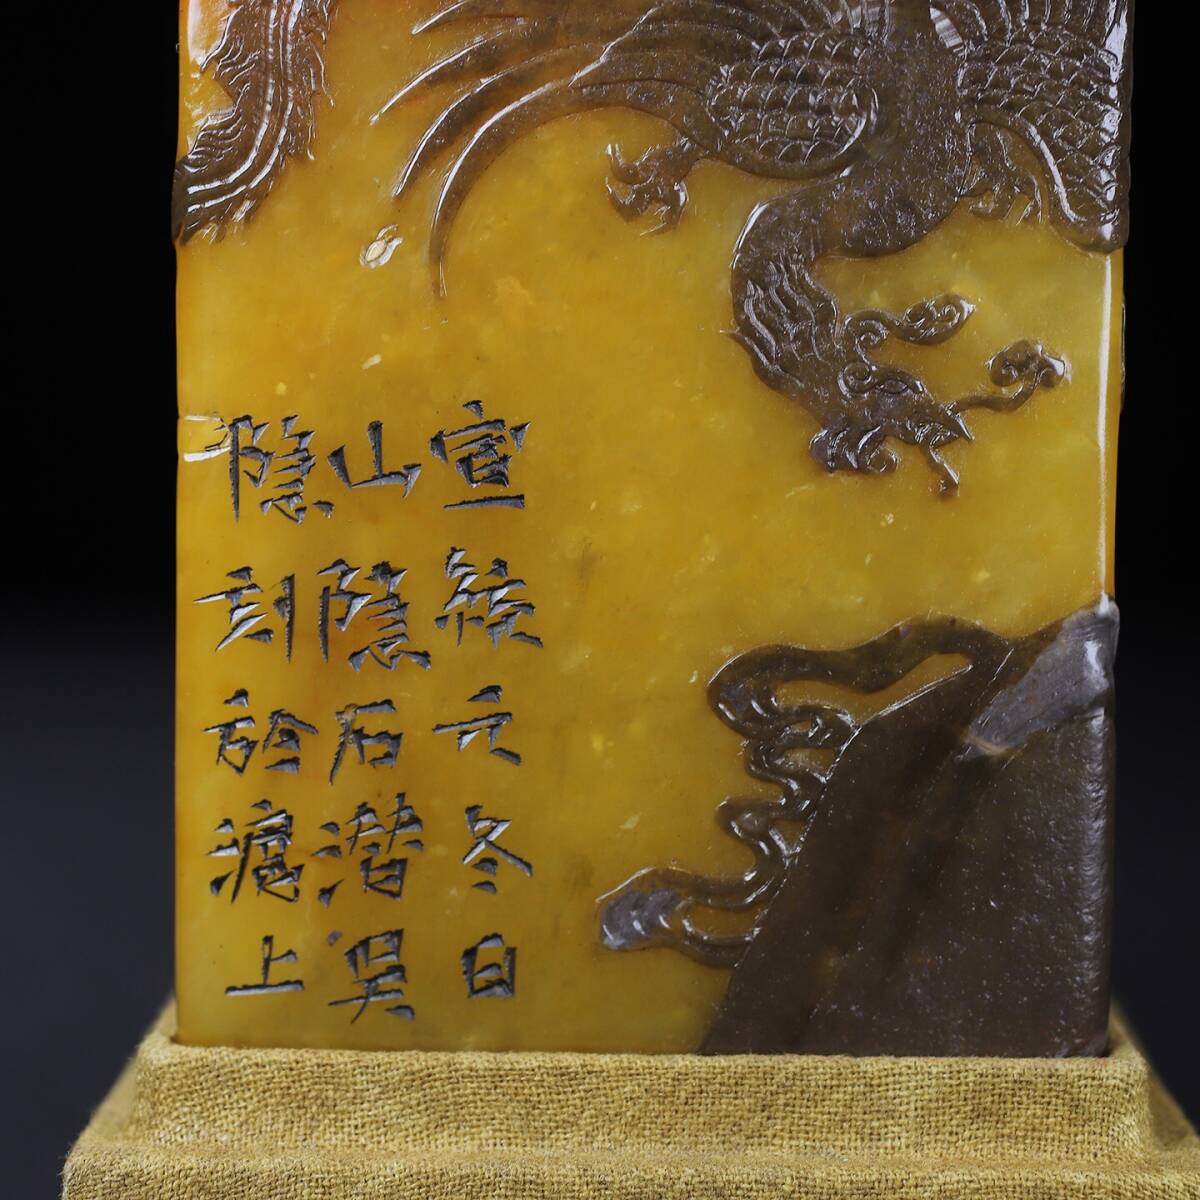 宣統元冬白
山隱石潜吳
隱刻於滬上